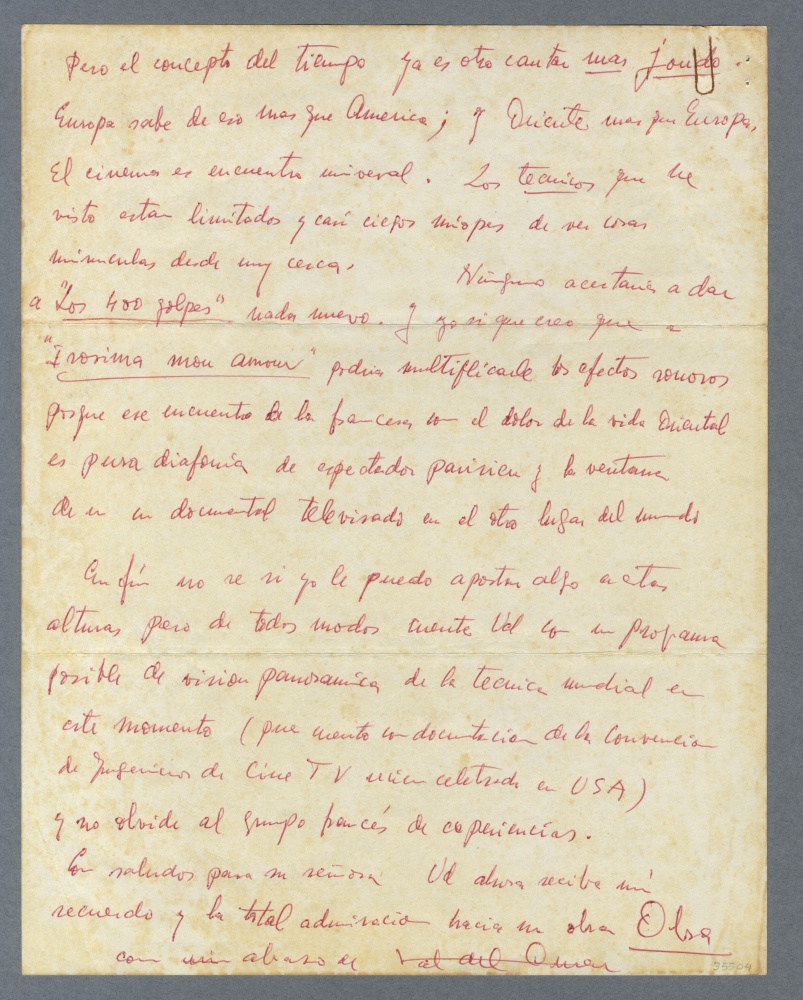 Pero el concepto del tiempo ya es otro cantar mas jondo.
Europa sabe de eso mas que America; y Oriente mas que Europa,
El cinema es encuentro universal. Los tecnicos que he
visto estan limitados y casi ciegos miopes de ver cosas
minusculas desde muy cerca,
Ninguno acertaria a dar
a "Los 400 golpes" nada nuevo. y yo si que creo que a
"Irosima mon amour" podria multiplicarle los efectos sonoros
porque ese encuentro de la francesa con el dolor de la vida Oriental
es pura diafonia de espectador parisien y la ventana
de un documental televisado en el otro lugar del mundo
En fin no se si yo le puedo aportar algo a estas
alturas pero de todos modos cuente Vd con un programa
posible de vision panoramica de la tecnica mundial en
este momento (que cuento con documentacion de la Convencion
de Ingenieros de Cine TV recien celebrada en USA)
y no olvide al grupo francés de experiencias.
Con saludos para su señora Vd ahora reciba mi
recuerdo y la total admiracion hacia su obra Obra
con un abrazo de Val del Omar